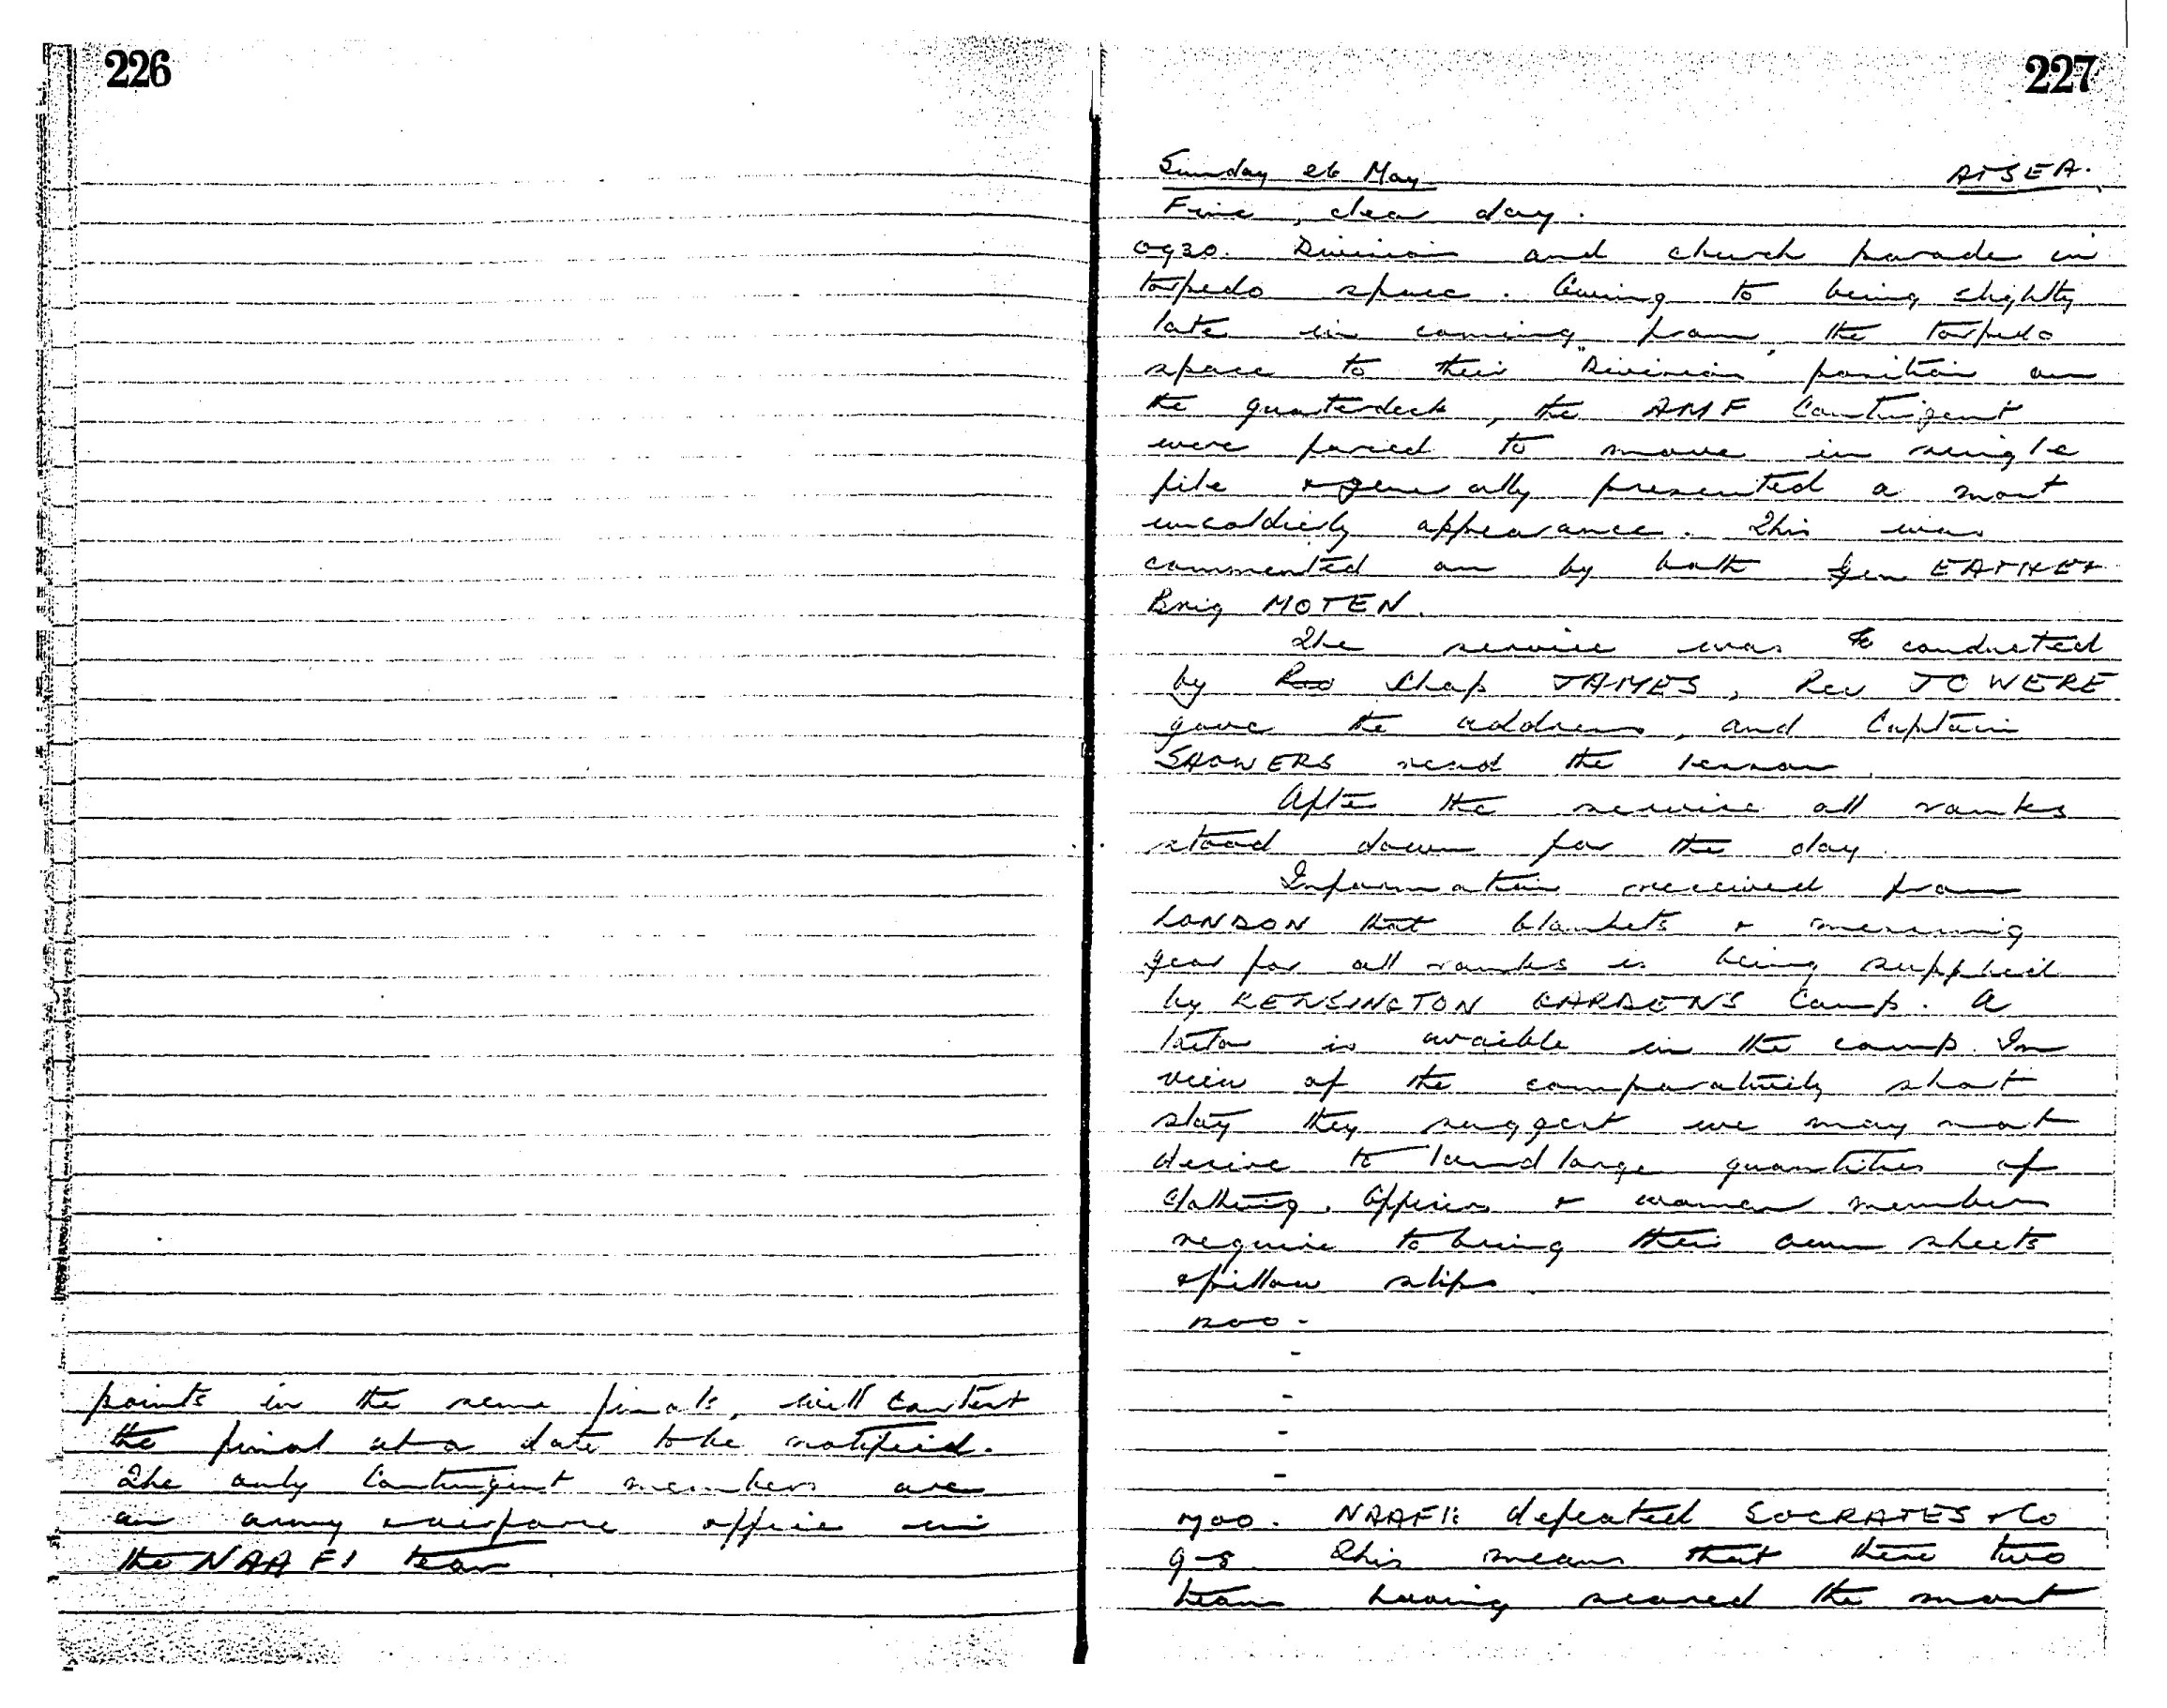 226
points in the semi finals, will contest
the final at a date to be notified.
The only Contingent members are
an army welfare officer in
the NAAFI team
227
Sunday 26 May AT SEA.
Fine, clear day.
0930. Division and church parade in
torpedo space. Owing to being slightly
late in coming from the torpedo
space to their "Division" position on
the quarterdeck, the AMF Contingent
were forced to move in single
file & generally presented a most
unsoldierly appearance. This was
commented on by both Gen EATHER
Brig MOTEN.
The service was conducted
by Chap JAMES, Rev
gave the address, and Captain
SHOWERS read the lesson.
After the service all ranks
stood down for the day.
Information received from
LONDON that blankets & messing
gear for all ranks is being supplied
by KENSINGTON GARDENS Camp. A
is availble in the camp. In
view of the comparatively short
stay they suggest we may not
desire to land large quantities of
clothing. Officers & women members
require to bring their own sheets
& pillow slips
-
-
-
-
1700. NAAFI: defeated SOCRATES & Co
9-8. This means that these two
teams having scored the most